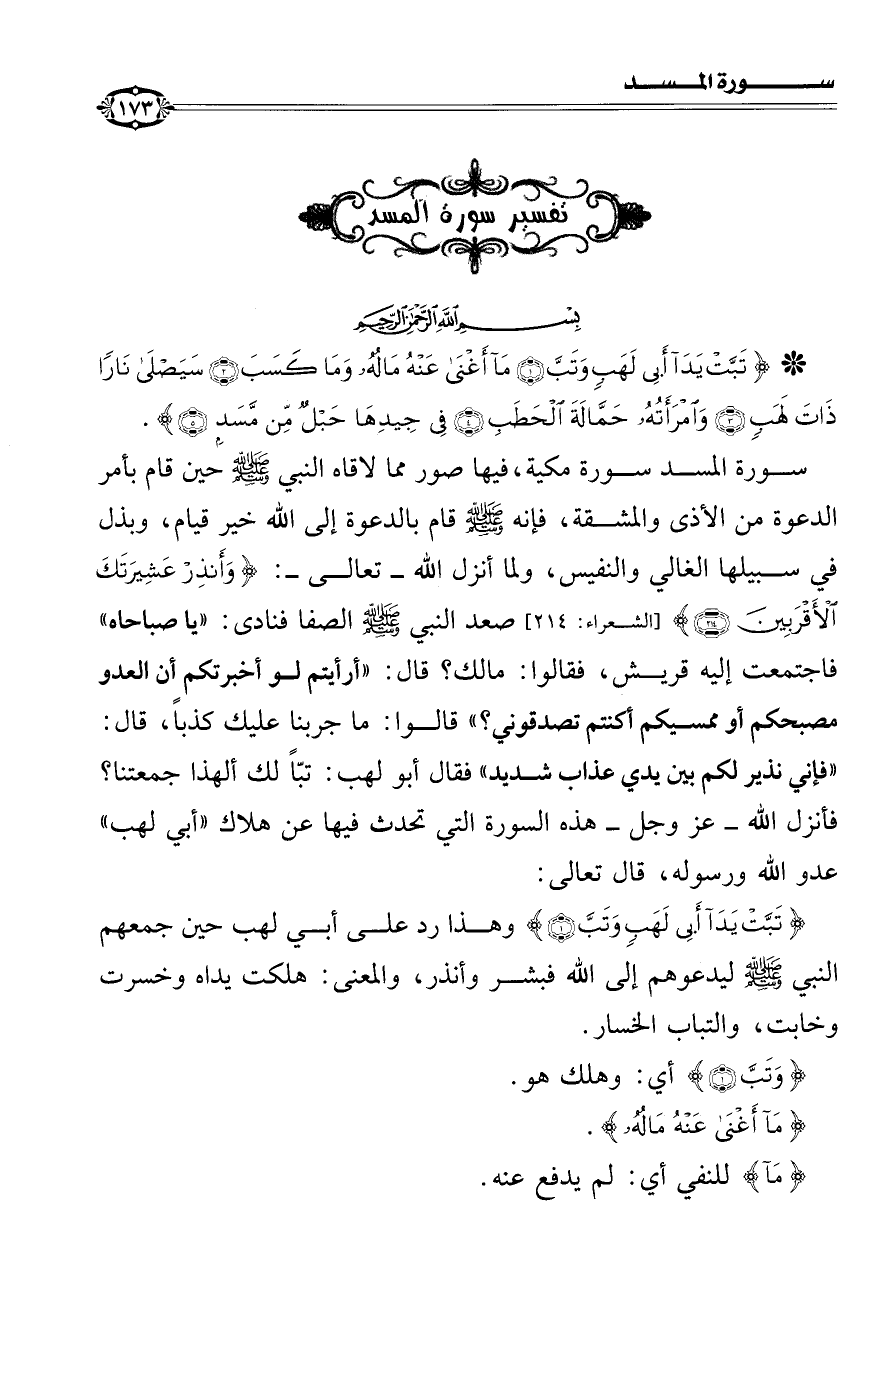 سورة المسد
١٧٣
تفسير سورة المسد
بِسْمِ اللَّهِ الرَّحْمَٰنِ الرَّحِيمِ
❋ ﴿ تَبَّتْ يَدَآ أَبِى لَهَبٍ وَتَبَّ ١ مَآ أَغْنَىٰ عَنْهُ مَالُهُۥ وَمَا كَسَبَ ٢ سَيَصْلَىٰ نَارًا
ذَاتَ لَهَبٍ ٣ وَٱمْرَأَتُهُۥ حَمَّالَةَ ٱلْحَطَبِ ٤ فِى جِيدِهَا حَبْلٌ مِّن مَّسَدٍ ٥ ﴾ .
سورة المسد سورة مكية، فيها صور مما لاقاه النبي ﷺ حين قام بأمر
الدعوة من الأذى والمشقة، فإنه ﷺ قام بالدعوة إلى الله خير قيام، وبذل
في سبيلها الغالي والنفيس، ولما أنزل الله ـ تعالى ـ: ﴿ وَأَنذِرْ عَشِيرَتَكَ
ٱلْأَقْرَبِينَ ٢١٤ ﴾ [الشعراء: ٢١٤] صعد النبي ﷺ الصفا فنادى: «يا صباحاه»
فاجتمعت إليه قريش، فقالوا: مالك؟ قال: «أرأيتم لو أخبرتكم أن العدو
مصبحكم أو ممسيكم أكنتم تصدقوني؟» قالوا: ما جربنا عليك كذباً، قال:
«فإني نذير لكم بين يدي عذاب شديد» فقال أبو لهب: تبّاً لك ألهذا جمعتنا؟
فأنزل الله ـ عز وجل ـ هذه السورة التي تحدث فيها عن هلاك «أبي لهب»
عدو الله ورسوله، قال تعالى:
﴿ تَبَّتْ يَدَآ أَبِى لَهَبٍ وَتَبَّ ١ ﴾ وهذا رد على أبي لهب حين جمعهم
النبي ﷺ ليدعوهم إلى الله فبشر وأنذر، والمعنى: هلكت يداه وخسرت
وخابت، والتباب الخسار.
﴿ وَتَبَّ ١ ﴾ أي: وهلك هو.
﴿ مَآ أَغْنَىٰ عَنْهُ مَالُهُۥ ﴾ .
﴿ مَآ ﴾ للنفي أي: لم يدفع عنه.